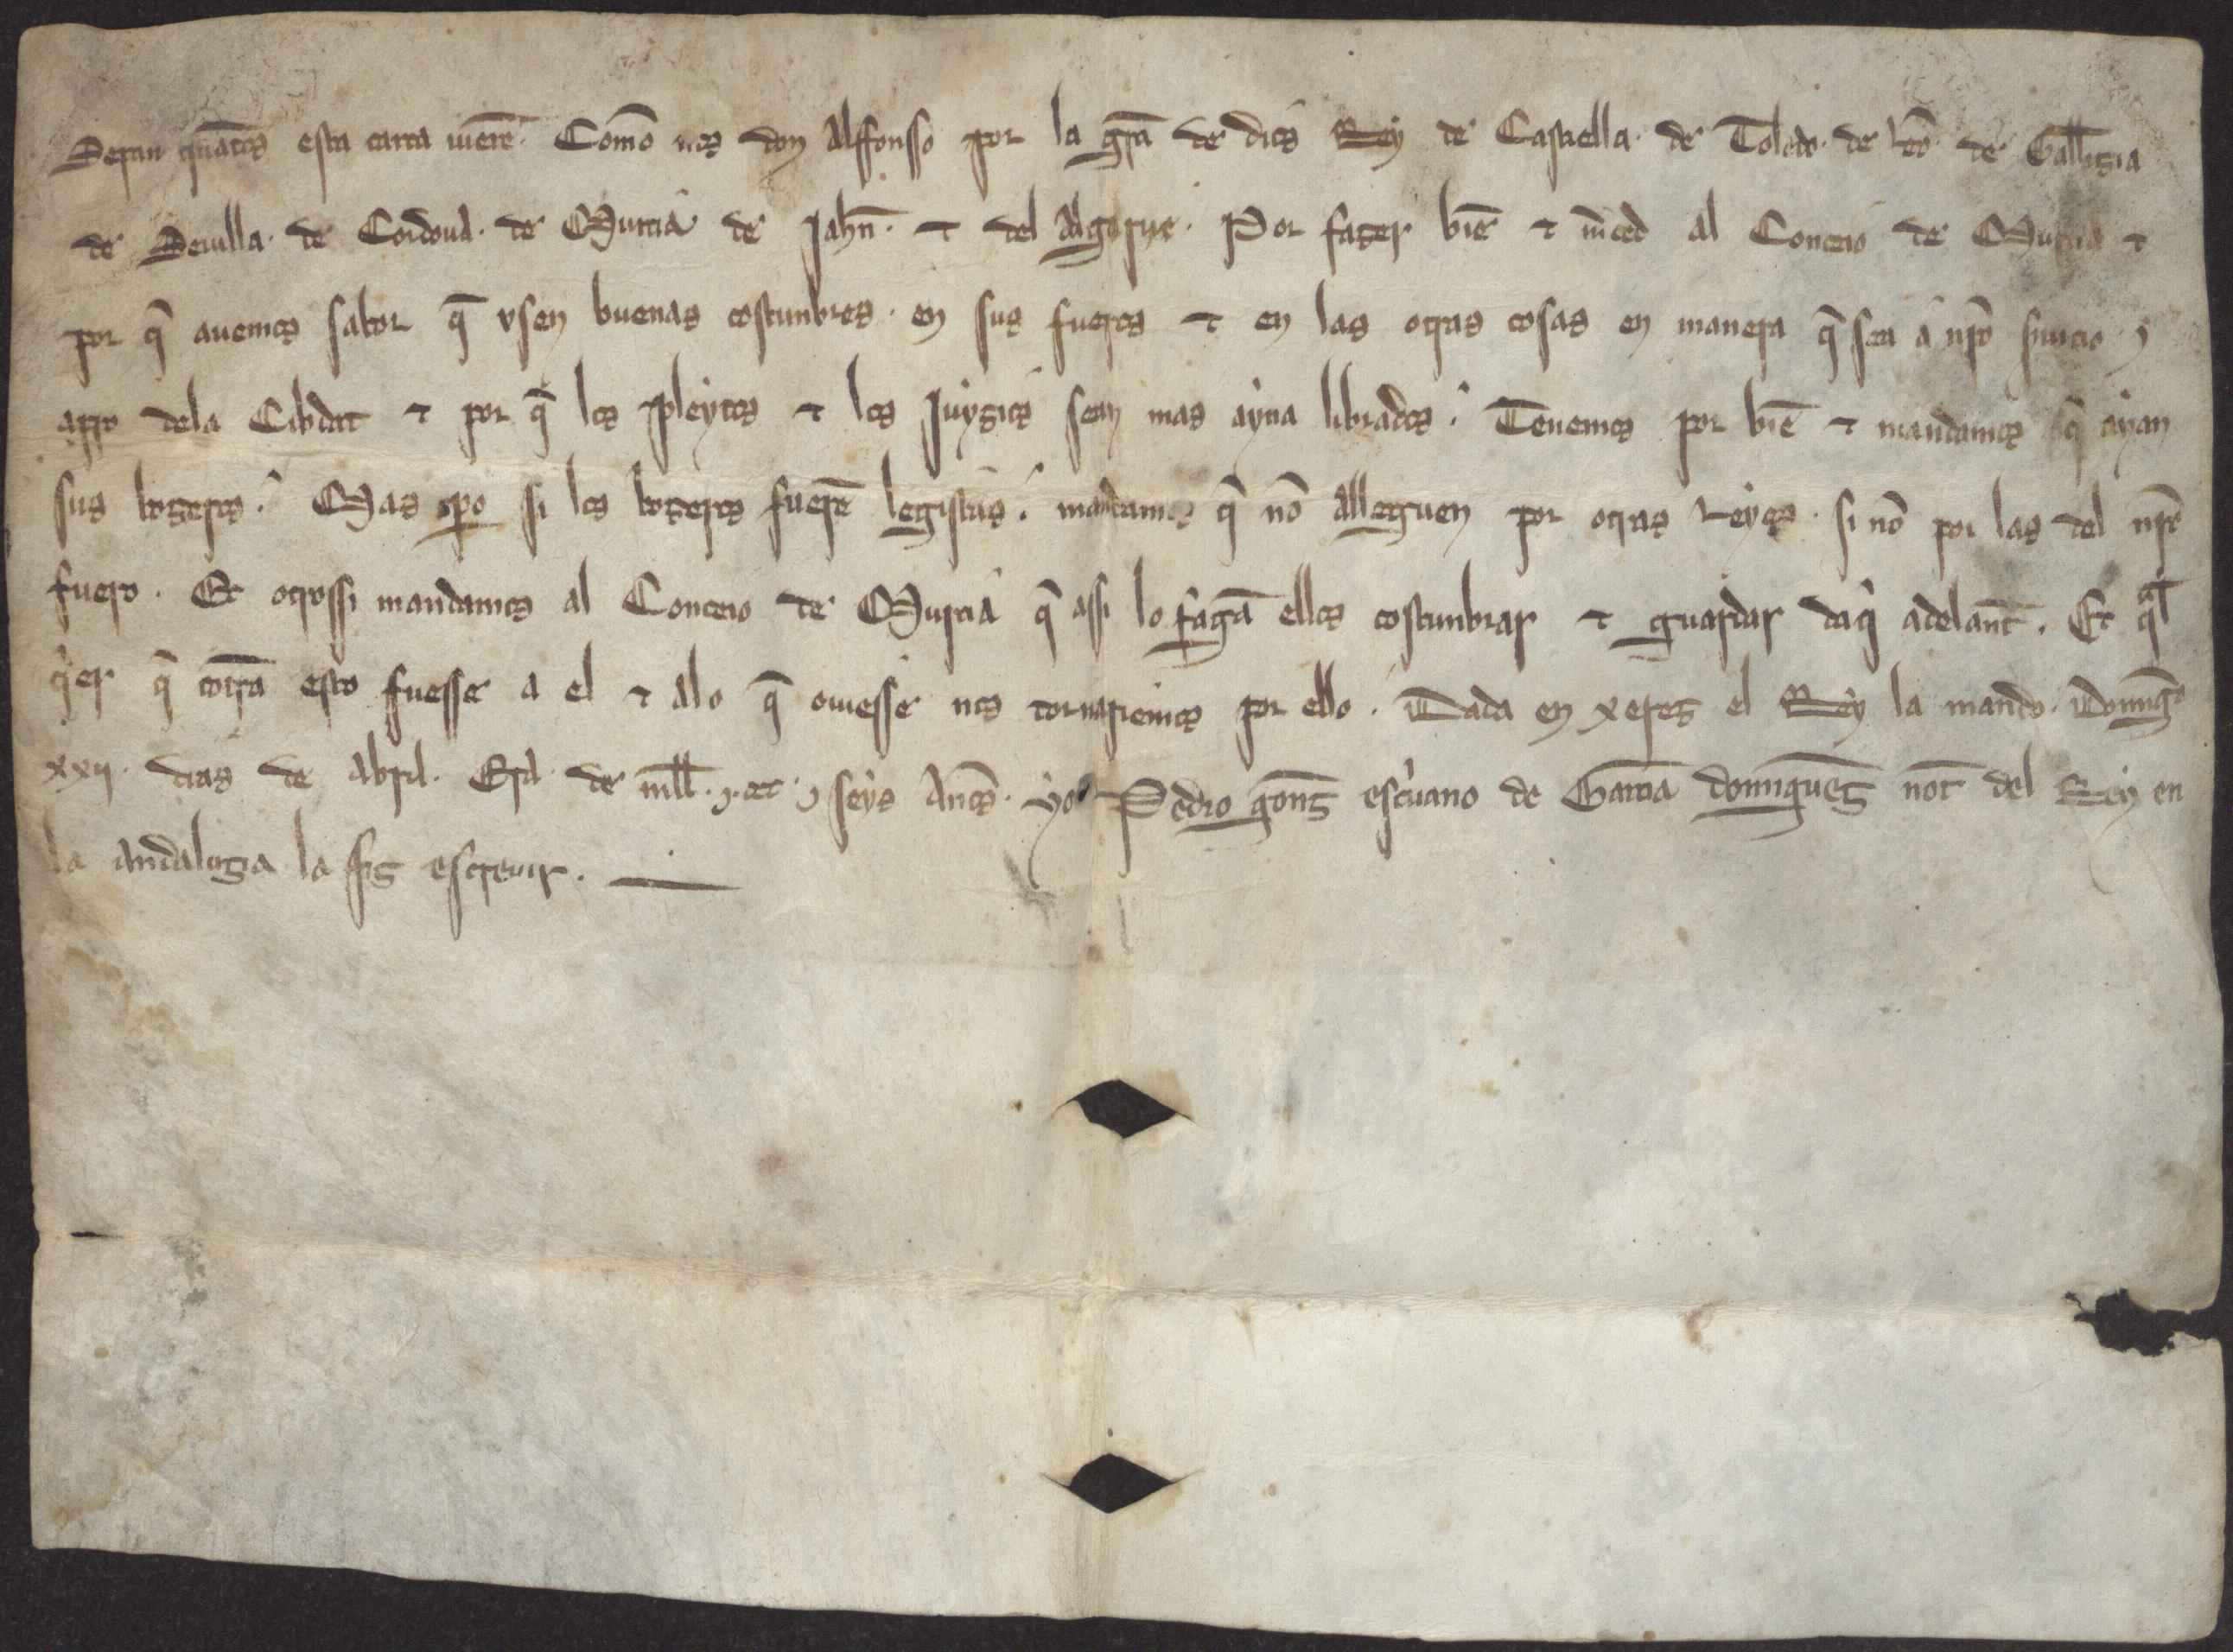 Sepan quātos esta carta uierē. Comō nos don Alffonsso por la grā de dios Rey de Castiella. de Toledo. de Leō. de Gallizia
de Seuilla. de Cordoua. de Murcia de Jahn̄. ⁊ del Algarue. Por fazer biē ⁊ m̄ced al Conceio de Murcia ⁊
por q̄ auemos sabor q̄ usen buenas costunbres. en sus fueros ⁊ en las otras cosas en manera q̄ sea a nr̄o seruicio ⁊
a pro dela Cibdat ⁊ por q̄ los pleytos ⁊ los juyzios sean mas ayna librados. Tenemos por biē ⁊ mandamos q̄ ayan
sus bozeros. Mas pero si los bozeros fuerē legistas. mādamos q̄ nō alleguen por otras Leyes. si nō por las del nr̄o
fuero. Et otrossi mandamos al Conceio de Murcia q̄ assi lo fagā ellos costunbrar ⁊ guardar daq̄ adelant̄. Et q̄l
q̄er q̄ cōtra esto fuesse a el ⁊ alo q̄ ouiesse nos tornariemos por ello. Dada en Xerez el Rey la mando. Domīgo
xxii. dias de Abril. Era de mill. ⁊. ccc. ⁊ seys Anōs. Yo Pedro gonz̄ esc̄uano de Garcia domīguez not̄ del Rey en
la Andaluzia la fiz escreuir.